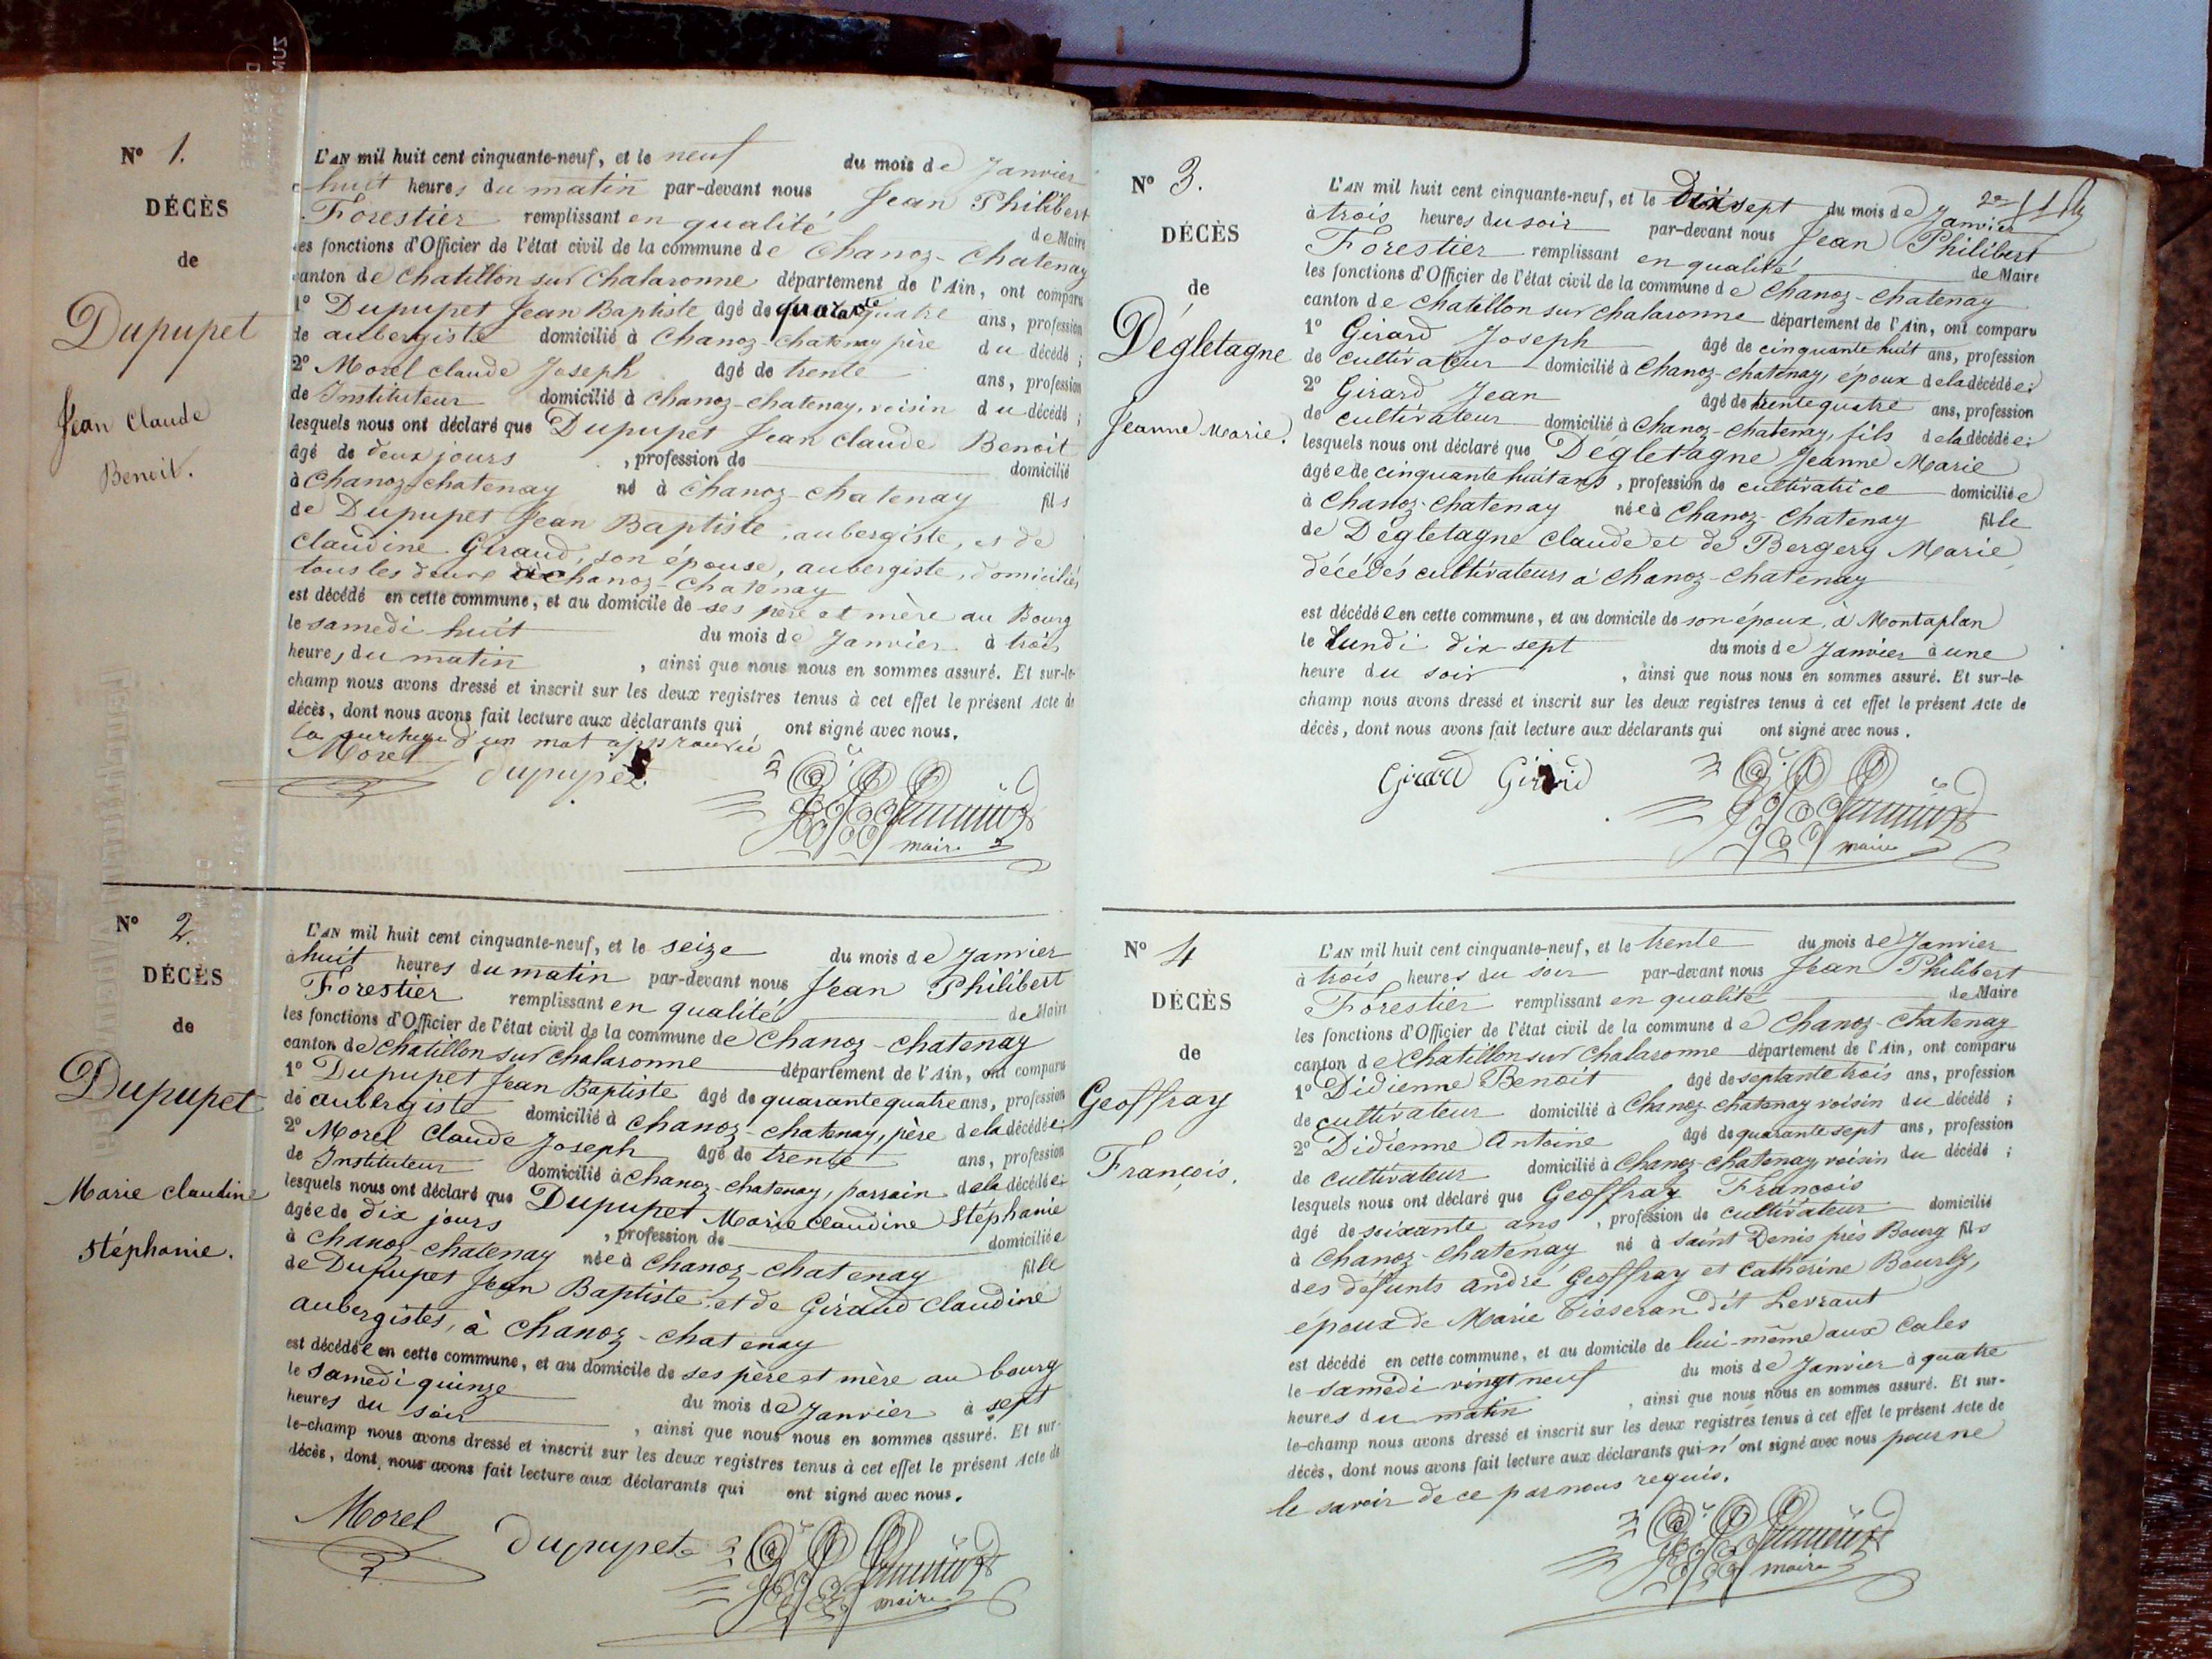 N° 1.
DÉCÈS
de
Dupupet
Jean Claude
Benoit.
L'AN mil huit cent cinquante-neuf, et le neuf du mois de Janvier
huit heures du matin par-devant nous Jean Philibert
Forestier remplissant en qualité de Maire
les fonctions d'Officier de l'état civil de la commune de Chanoz-Chatenay
canton de Chatillon sur Chalaronne département de l'Ain, ont comparu
1° Dupupet Jean Baptiste âgé de quarante quatre ans, profession
de aubergiste domicilié à Chanoz-chatenay père du décédé ;
2° Morel claude Joseph âgé de trente ans, profession
de Instituteur domicilié à Chanoz-chatenay, voisin du décédé ;
lesquels nous ont déclaré que Dupupet Jean claude Benoit
âgé de deux jours , profession de domicilié
à Chanoz-chatenay né à Chanoz-chatenay fils
de Dupupet Jean Baptiste, aubergiste, et de
Claudine Giraud, son épouse, aubergiste, domiciliés
tous les deux à Chanoz-Chatenay
est décédé en cette commune, et au domicile de ses père et mère au Bourg
le samedi huit du mois de Janvier à trois
heures du matin , ainsi que nous nous en sommes assuré. Et sur-le-
champ nous avons dressé et inscrit sur les deux registres tenus à cet effet le présent Acte de
décès, dont nous avons fait lecture aux déclarants qui ont signé avec nous.
la surcharge d'un mot approuvée
Morel Dupupet
maire
N° 2.
DÉCÈS
de
Dupupet
Marie Claudine
Stéphanie.
L'AN mil huit cent cinquante-neuf, et le seize du mois de Janvier
à huit heures du matin par-devant nous Jean Philibert
Forestier remplissant en qualité de Maire
les fonctions d'Officier de l'état civil de la commune de Chanoz-chatenay
canton de Chatillon sur Chalaronne département de l'Ain, ont comparu
1° Dupupet Jean Baptiste âgé de quarante quatre ans, profession
de aubergiste domicilié à Chanoz-chatenay, père de la décédée ;
2° Morel Claude Joseph âgé de trente ans, profession
de Instituteur domicilié à Chanoz-chatenay, parrain de la décédée ;
lesquels nous ont déclaré que Dupupet Marie Claudine Stéphanie
âgée de dix jours , profession de domiciliée
à Chanoz-chatenay née à Chanoz-chatenay fille
de Dupupet Jean Baptiste, et de Giraud Claudine
aubergistes, à Chanoz-chatenay
est décédée en cette commune, et au domicile de ses père et mère au bourg
le samedi quinze du mois de Janvier à sept
heures du soir , ainsi que nous nous en sommes assuré. Et sur-
le-champ nous avons dressé et inscrit sur les deux registres tenus à cet effet le présent Acte de
décès, dont nous avons fait lecture aux déclarants qui ont signé avec nous.
Morel Dupupet
maire
N° 3.
DÉCÈS
de
Dégletagne
Jeanne Marie.
L'AN mil huit cent cinquante-neuf, et le dix sept du mois de Janvier
à trois heures du soir par-devant nous Jean Philibert
Forestier remplissant en qualité de Maire
les fonctions d'Officier de l'état civil de la commune de Chanoz-chatenay
canton de Chatillon sur Chalaronne département de l'Ain, ont comparu
1° Girard Joseph âgé de cinquante huit ans, profession
de cultivateur domicilié à Chanoz-chatenay, époux de la décédée ;
2° Girard Jean âgé de trente quatre ans, profession
de cultivateur domicilié à Chanoz-chatenay, fils de la décédée ;
lesquels nous ont déclaré que Dégletagne Jeanne Marie
âgée de cinquante huit ans, profession de cultivatrice domiciliée
à Chanoz-chatenay née à Chanoz-chatenay fille
de Dégletagne Claude et de Bergery Marie,
décédés cultivateurs à Chanoz-chatenay
est décédée en cette commune, et au domicile de son époux, à Montaplan
le lundi dix sept du mois de Janvier à une
heure du soir , ainsi que nous nous en sommes assuré. Et sur-le-
champ nous avons dressé et inscrit sur les deux registres tenus à cet effet le présent Acte de
décès, dont nous avons fait lecture aux déclarants qui ont signé avec nous.
Girard Girard
maire
N° 4
DÉCÈS
de
Geoffray
François.
L'AN mil huit cent cinquante-neuf, et le trente du mois de Janvier
à trois heures du soir par-devant nous Jean Philibert
Forestier remplissant en qualité de Maire
les fonctions d'Officier de l'état civil de la commune de Chanoz-chatenay
canton de Chatillon sur Chalaronne département de l'Ain, ont comparu
1° Didienne Benoit âgé de septante trois ans, profession
de cultivateur domicilié à Chanoz chatenay voisin du décédé ;
2° Didienne Antoine âgé de quarante sept ans, profession
de cultivateur domicilié à Chanoz-chatenay, voisin du décédé ;
lesquels nous ont déclaré que Geoffray François
âgé de soixante ans , profession de cultivateur domicilié
à Chanoz-Chatenay né à saint Denis près Bourg fils
des défunts andré Geoffray et Catherine Bourly,
époux de Marie Tisseran dit Levraut
est décédé en cette commune, et au domicile de lui-même aux Cales
le samedi vingt neuf du mois de Janvier à quatre
heures du matin , ainsi que nous nous en sommes assuré. Et sur-
le-champ nous avons dressé et inscrit sur les deux registres tenus à cet effet le présent Acte de
décès, dont nous avons fait lecture aux déclarants qui n'ont signé avec nous pour ne
le savoir de ce par nous requis.
maire